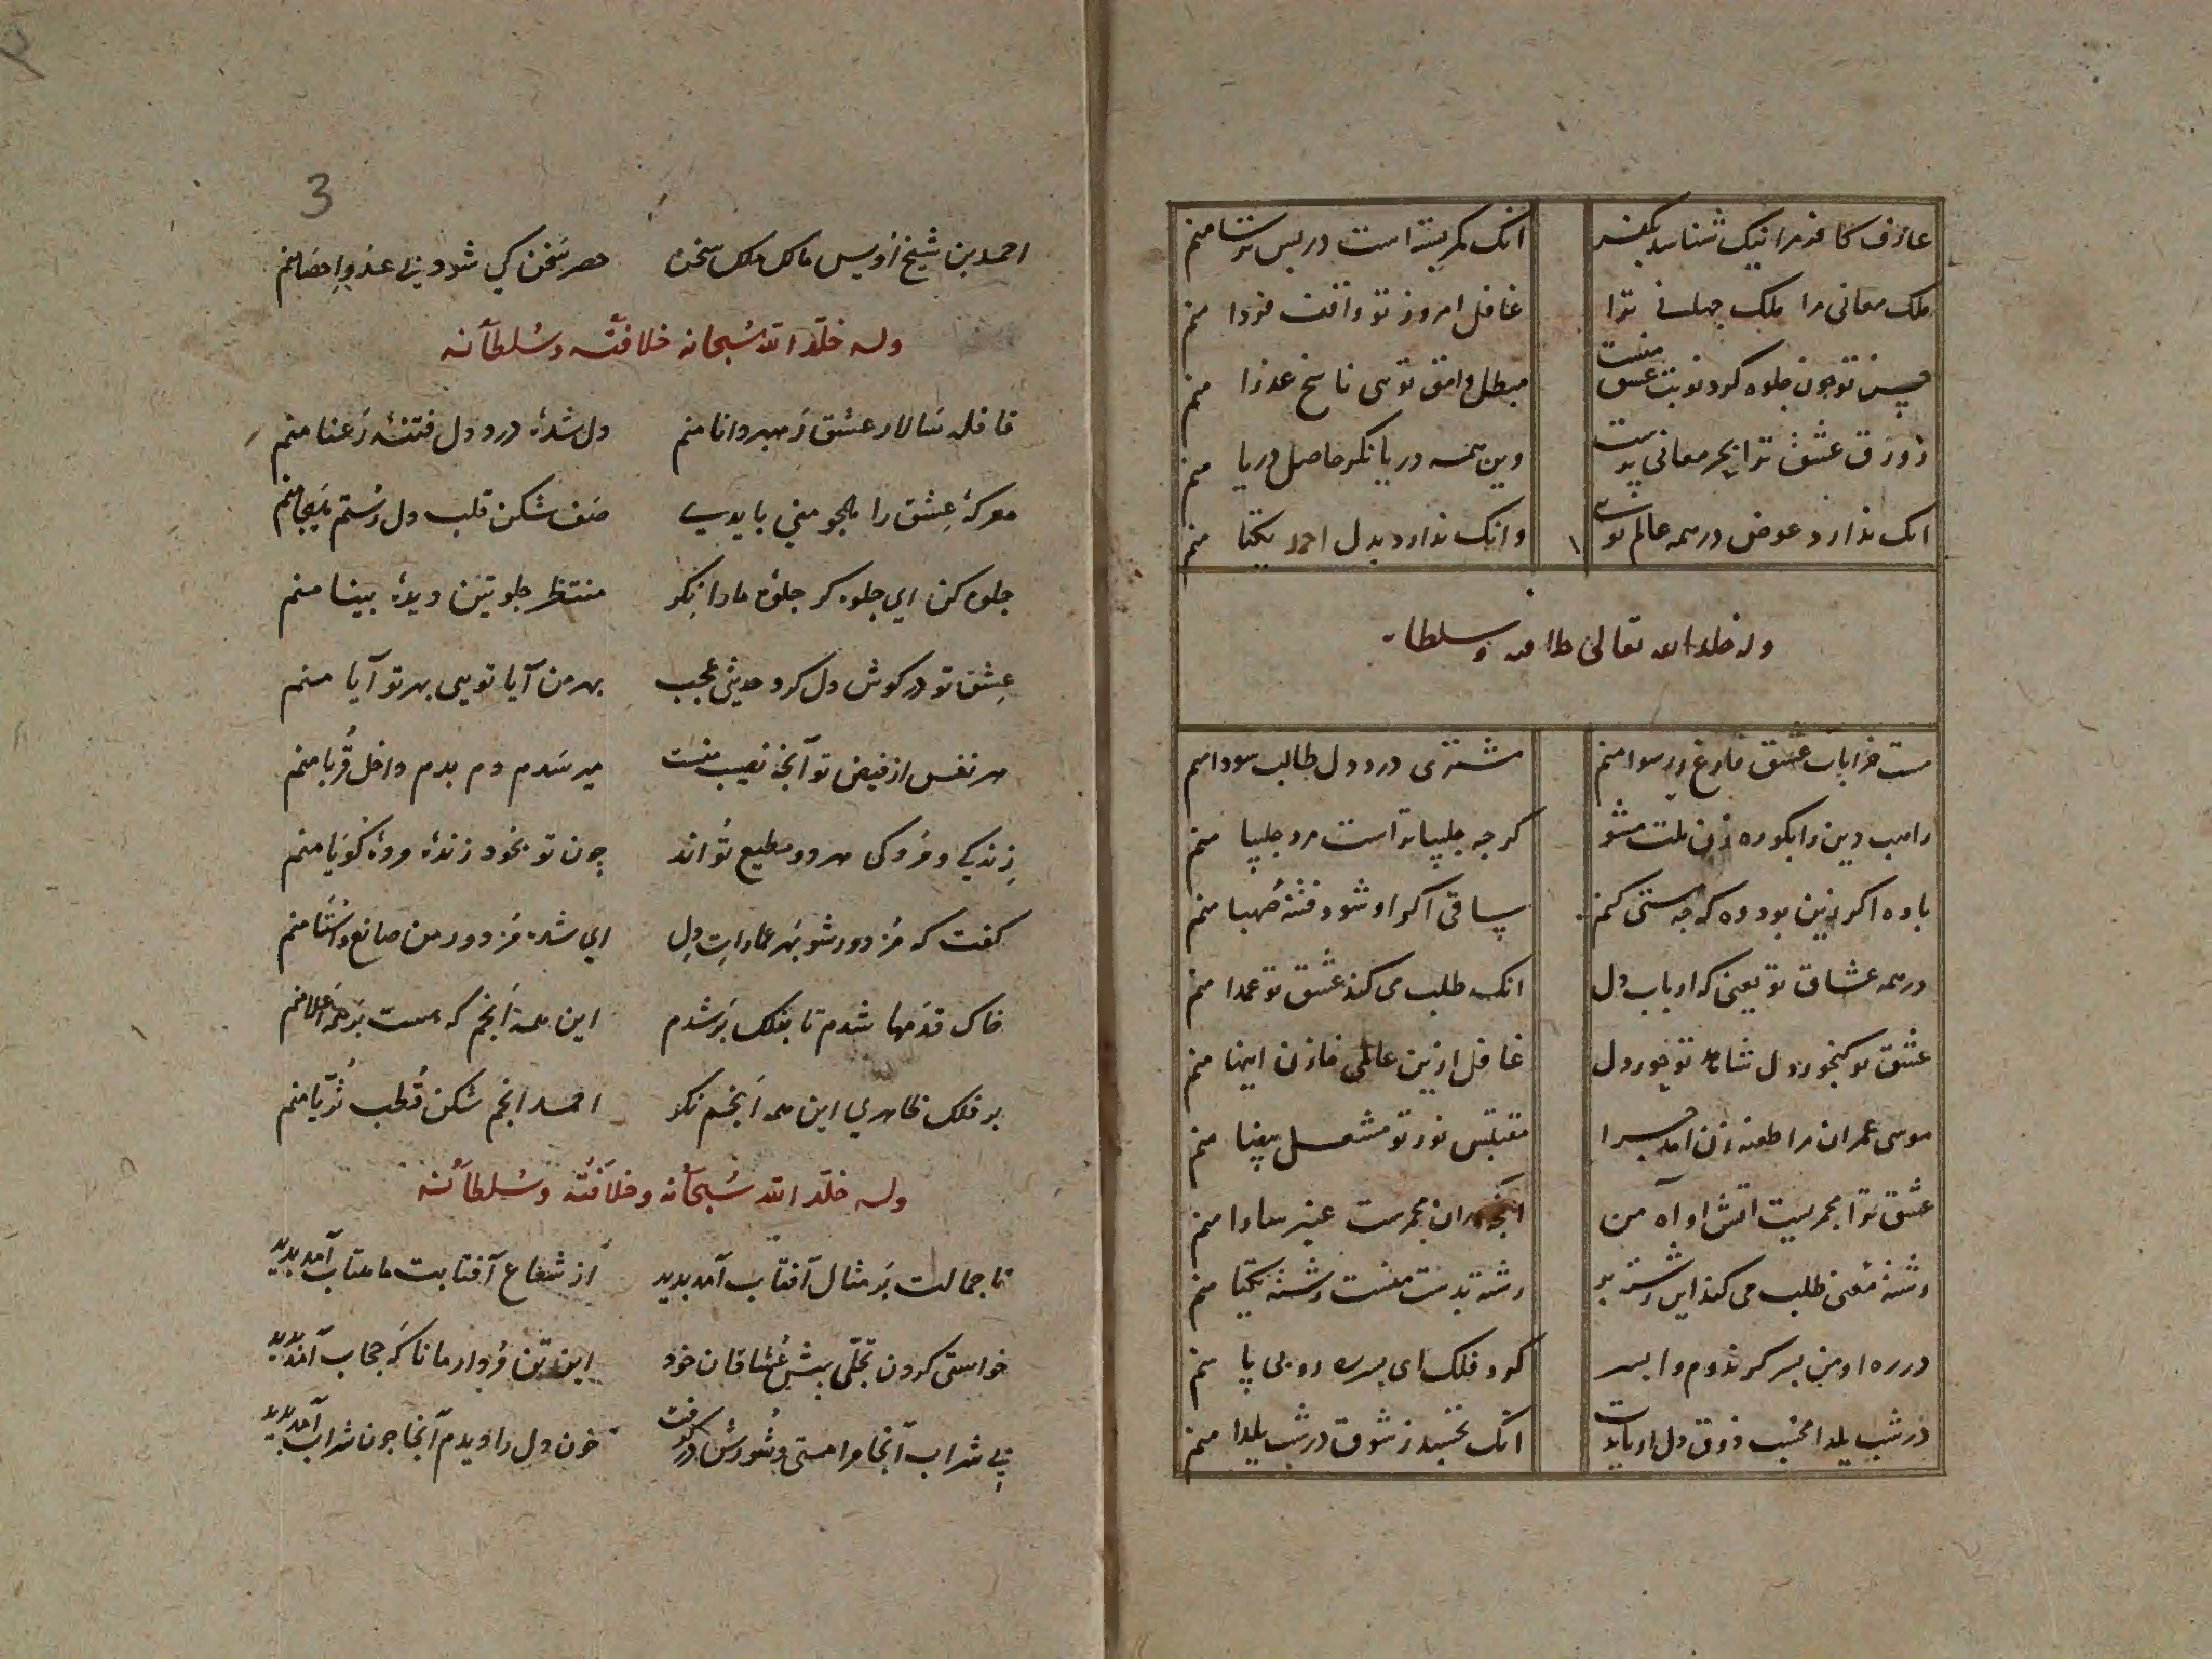 عارف کافر مرا نیک شناسد بکفر انک کمر بسته است در پس ترسا منم
ملک معانی مرا ملک جهانی ترا غافل امروز تو واقف فردا منم
حسن تو چون جلوه کرد نوبت عشق منست مبطل وامق تویی ناسخ عذرا منم
زورق عشق ترا بحر معانی پرست وین همه دریا نکر حاصل دریا منم
انک ندارد عوض در همه عالم تویی وانک ندارد بدل احمد یکتا منم
وله خلد الله تعالی خلافته و سلطانه
مست خرابات عشق فارغ و رسوا منم مشتری درد دل طالب سودا منم
راهب دین را بکو ره زن ملت مشو کرچه چلیپا تراست مرد چلیپا منم
باده اکر زین بود وه که چه مستی کنم ساقی اکر او شود فتنهٔ صهبا منم
در همه عشاق تو یعنی که ارباب دل انک طلب می کند عشق تو عمدا منم
عشق تو کنجور دل تو دل غافل ازین عالمی خازن اینها منم
موسی عمران مرا طعنه زن آمد چرا مقتبس نور تو مشعل بیضا منم
عشق ترا مجمریست اتش او آه من ان مجمرست عنبر سارا منم
رشتهٔ معنی طلب می کند این رشته بر رشته بدست منست رشتهٔ یکتا منم
در ره او من بسر کر ندوم وا بسر کرد فلک ای پسر بی پا منم
در شب یلدا مخسب ذوق دل ار بایدت انک نخسبد ز شوق در شب یلدا منم
3
احمد بن شیخ اویس مالک ملک سخن حصر سخن کی شود بی عد و احصا منم
وله خلّد الله سُبحانه خلافته وسُلطانه
قافله سالار عشق رهبر دانا منم دل شدهٔ درد دل فتنهٔ رعنا منم
معرکهٔ عشق را همچو منی باید صف شکن قلب دل رستم هیجا منم
جلوه کن ای جلوه کر جلوهٔ ما را نکر منتظر جلوتین دیدهٔ بینا منم
عشق تو در کوش دل کرد حدیثی عجب بهر من آیا تویی بهر تو آیا منم
هر نفس از فیض تو آنچه نصیب منست میرسدم دم بدم داخل قربا منم
زندکی و مردکی هر دو مطیع تواند چون تو بخود زندهٔ مردهٔ کویا منم
کفت که مزدور شو بهر عمارات دل ای شده مزدور من صانع و استا منم
خاک قدمها شدم تا بفلک برشدم این همه انجم که هست بر همه اعلا منم
بر فلک ظاهری این همه انجم نکر احمد انجم شکن قطب ثریا منم
وله خلّد الله سُبحانه وخلافته وسُلطانه
تا جمالت بر مثال آفتاب آمد بدید از شعاع آفتابت ماهتاب آمد بدید
خواستی کردن تجلّی پیش عشاقان خود این تن مردار مانا که حجاب آمد بدید
بی شراب آنجا مرا مستی و شورش در کرفت خون دل را دیدم آنجا چون شراب آمد بدید